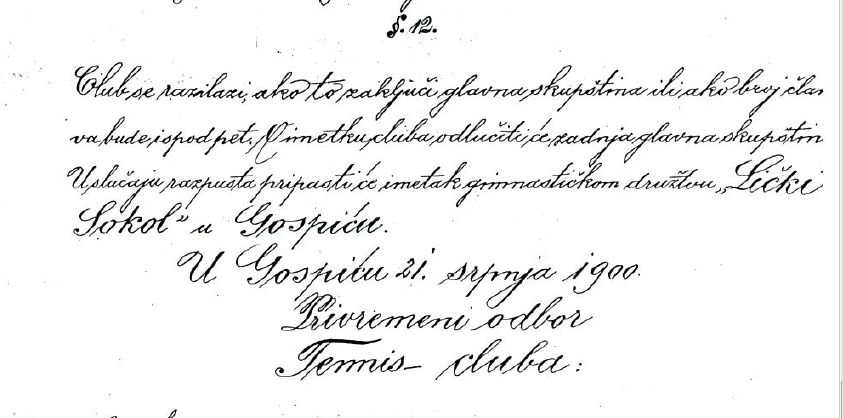 §. 12.
Club se razilazi, ako to zaključi glavna skupština ili ako broj član
va bude ispod pet. O imetku cluba odlučiti će zadnja glavna skupštin
U slučaju razpusta pripasti će imetak gimnastičkom družtvu „Lički
Sokol" u Gospiću.
U Gospiću 21. srpnja 1900.
Privremeni odbor
Tennis-cluba: